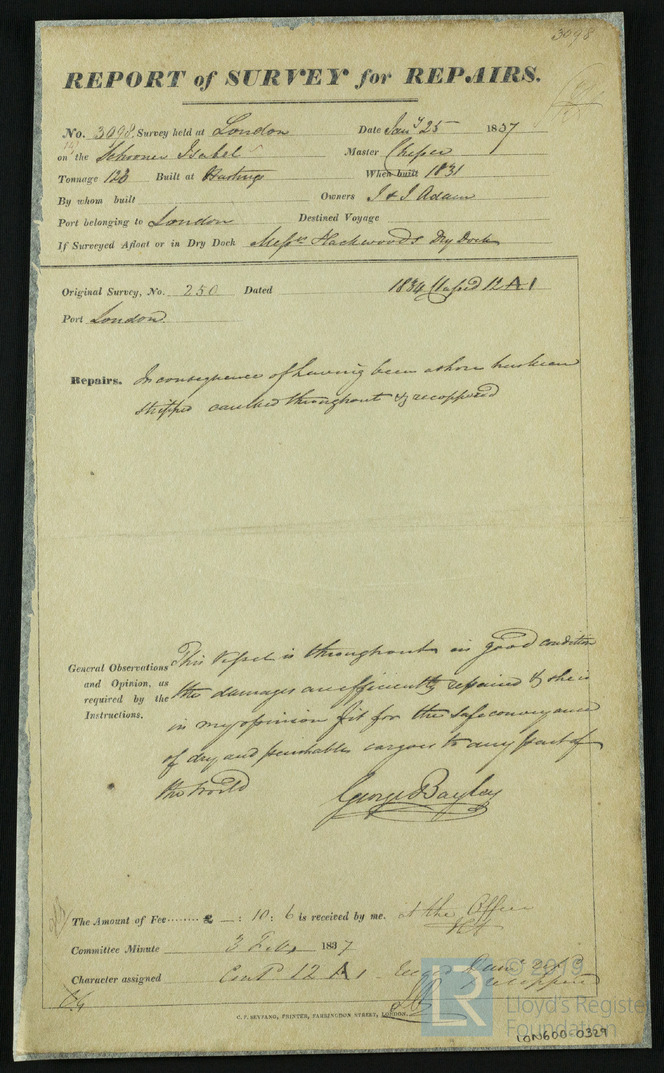 3098
REPORT of SURVEY for REPAIRS.
No. 3098. Survey held at London Date Jany 25 1837
on the Schooner Isabel Master
Tonnage 128 Built at Hastings When built 1831
By whom built Owners J & J Adam
Port belonging to London Destined Voyage
If Surveyed Afloat or in Dry Dock Messrs Hackwoods Dry Dock
Original Survey, No. 250 Dated 1834 Classed 12 A 1
Port London
Repairs. In consequence of having been ashore has been
stripped caulked throughout & recoppered
General Observations and Opinion, as required by the Instructions.
This Vessel is throughout in good condition
the damages are efficiently repaired & she is
in my opinion fit for the safe conveyance
of dry and perishable cargoes to any part of
the World
George Bayley
The Amount of Fee ........ £ — : 10 : 6 is received by me. at the Office
Committee Minute 3 Feby 1837
Character assigned Contd 12 A 1
C. F. SEYFANG, PRINTER, FARRINGDON STREET, LONDON.
LR
© 2019
Lloyd's Register
Foundation
LON600-0329